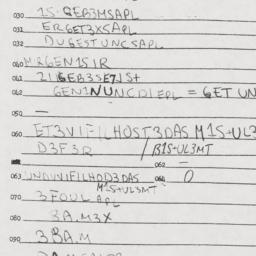 030 1S·GEB3MSAPL
031 ERGET3XSAPL
032 DUGESTUNCSAPL
040 MRGEN1SIR
041 21GEB3SE71St
042 GEN1NUNCDIEPL = GET UN
050 —
060 ET3V1F1LHOST3DAS M1S+UL3
D3F3R / B1S+UL3MT
062 —
063 UNDVV1F1LHOD3DAS 064 0
M1S+UL3MT
070 3FOUL APL
080 3A.M3X
090 33A.M